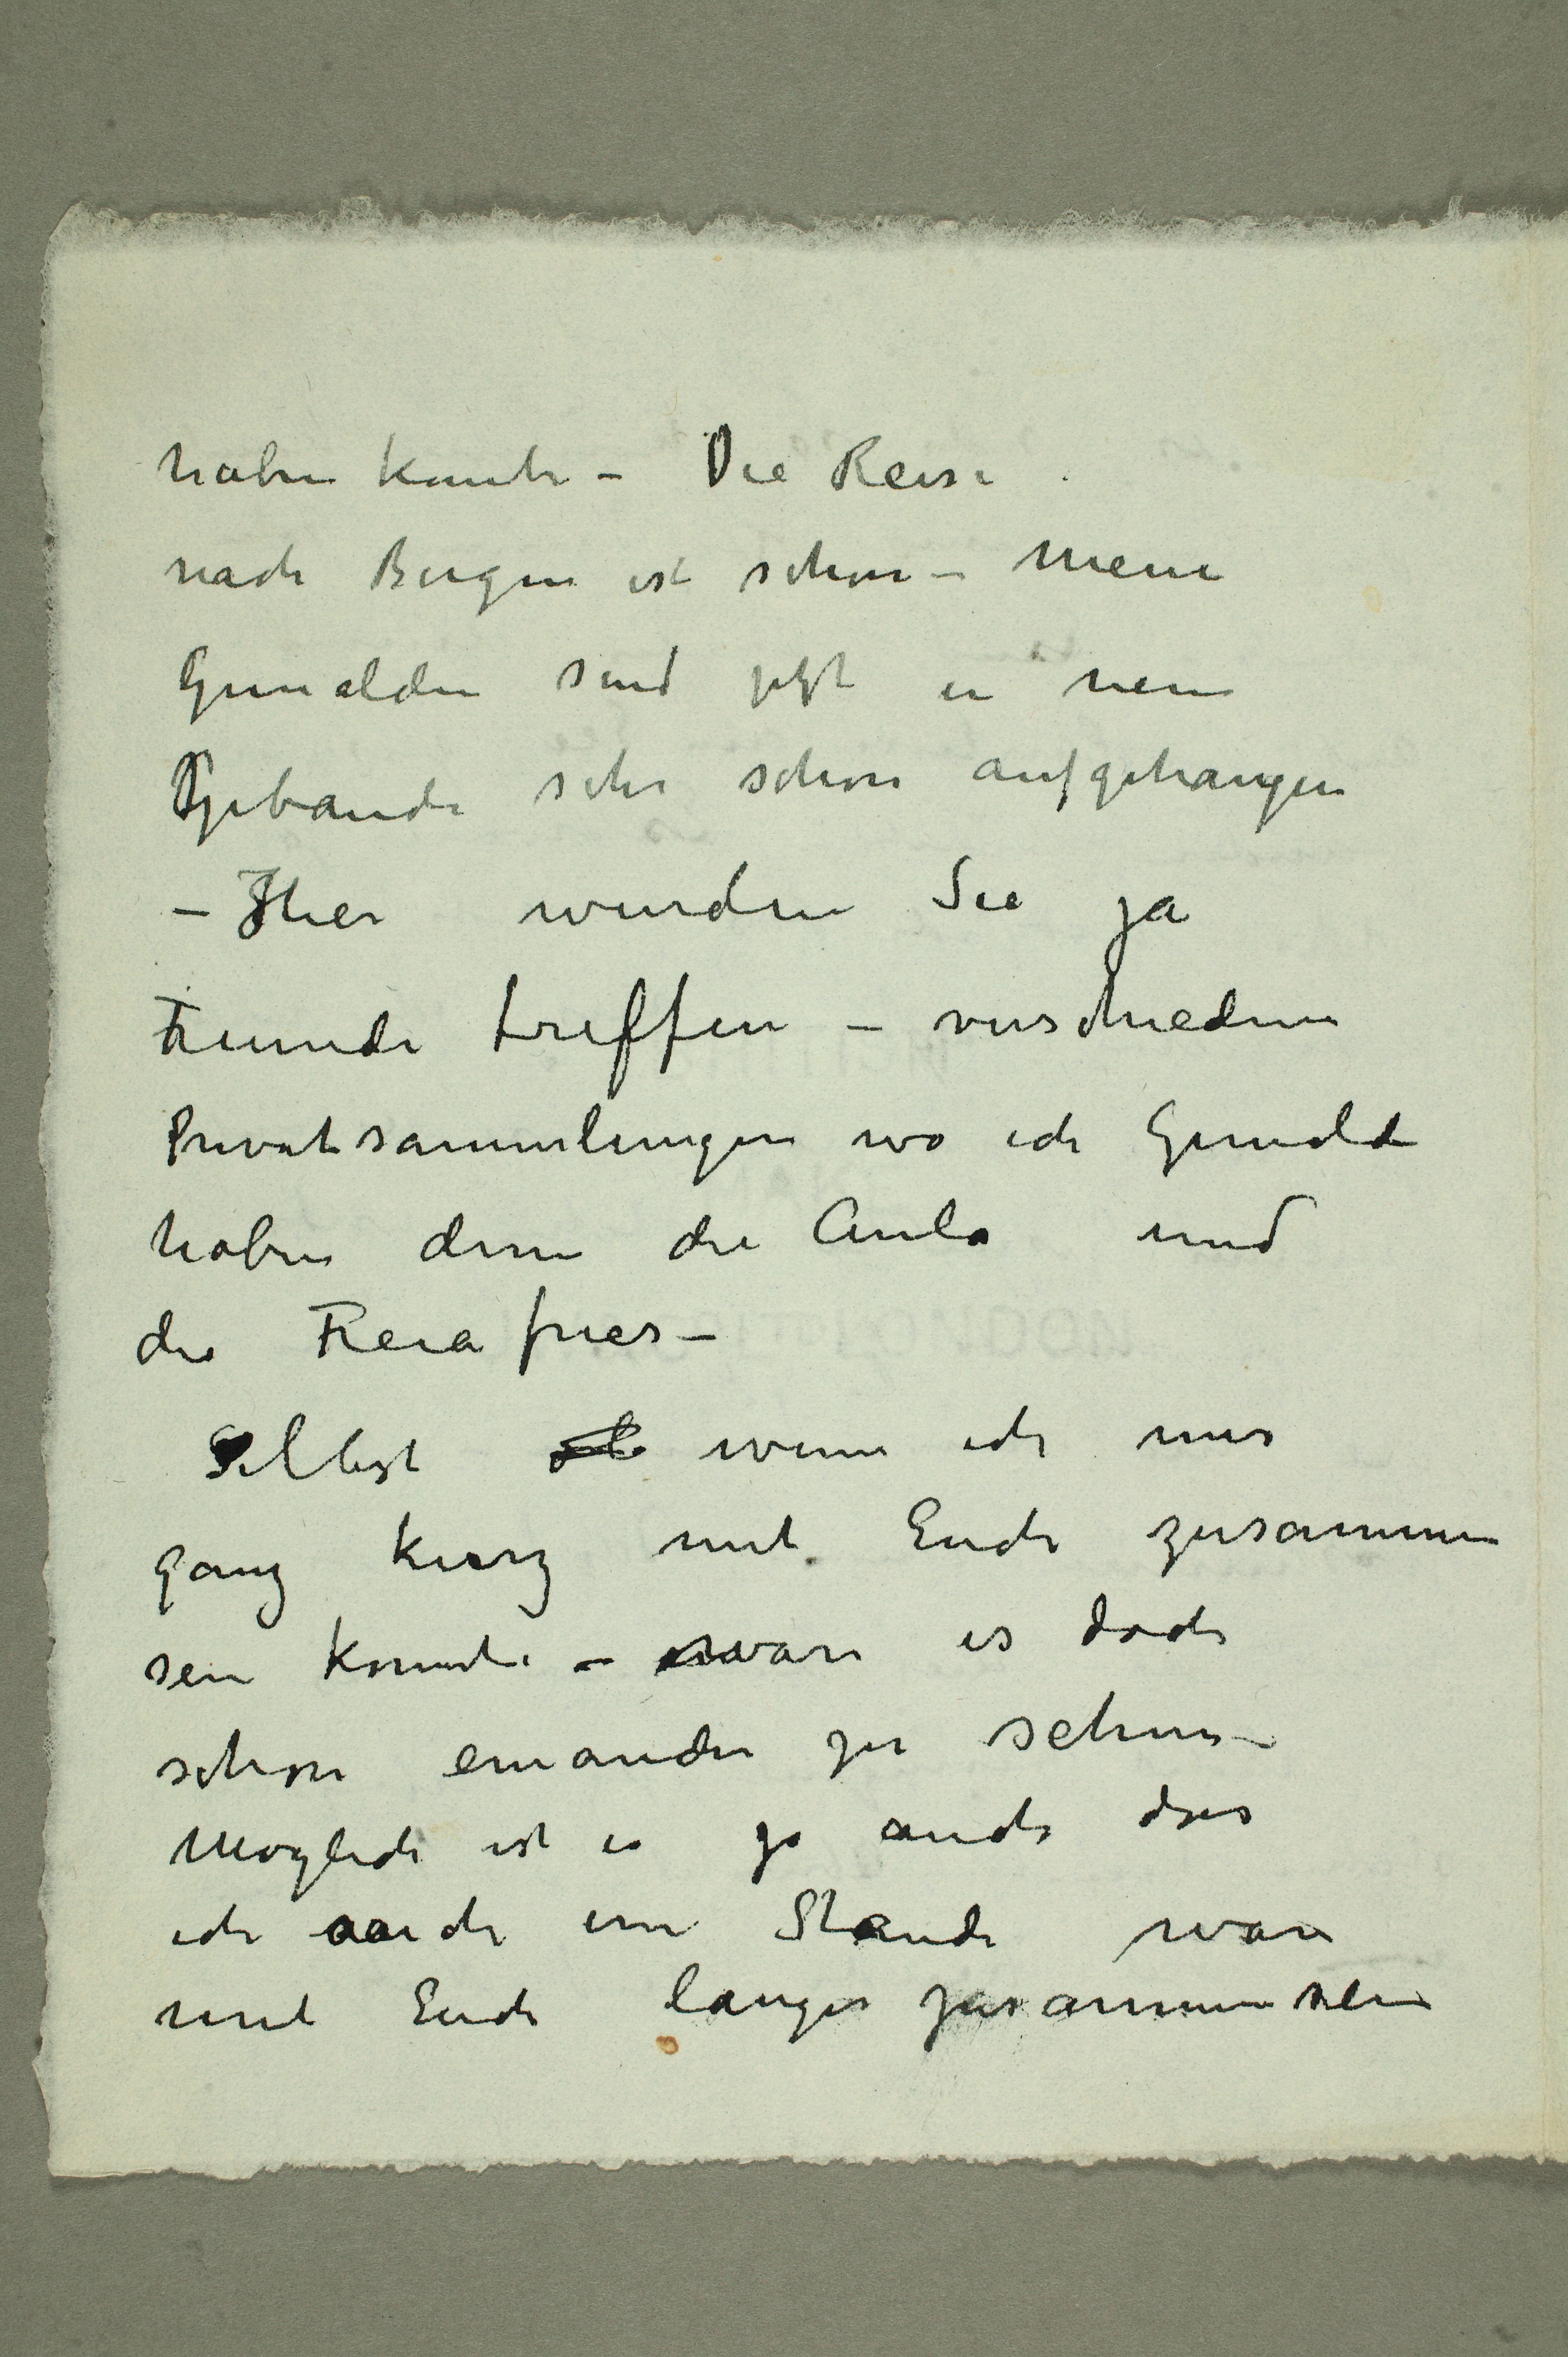 haben konnte – Die Reise
nach Bergen ist schon – Meine
Gemälden sind jetzt in neuen
Gebaude sehr schon aufgehangen
– Hier wurden Sie ja
Freunde treffen – verschiedene
Privatsammlungen wo ich Gemälde
haben denn die Aula und
die Freiafries –
Selbst wenn ich nur
ganz kurz mit Euch zusammen
sein konnte – wäre es doch
schon einander zu sehen –
Moglich ist es ja auch das
ich auch im Stande ware
mit Euch langer zusammen sein